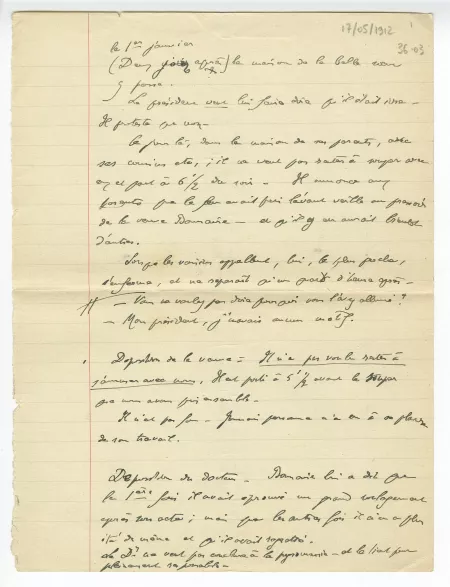 17/05/1912
36-03
le 1er janvier
(Deux jours après) la maison de la belle soeur
y passe.
Le président veut lui faire dire qu'il était ivre -
Il proteste que non -
Ce jour là, dans la maison de ses parents, avec
ses cousins etc, ; il ne veut pas rester à souper avec
eux et part à 6 ½ du soir - Il annonce aux
parents que le feu avait pris l'avant veille au
de la veuve - et qu'il y en aurait bientôt
d'autres.
Lorsque les voisins appellent, lui, le plus proche,
s'enferme, et ne reparaît qu'un quart d'heure après -
- Vous ne voulez pas dire pourquoi vous l'avez allumé ?
- Mon président, je n'avais aucun motif.
Déposition de la veuve = Il n'a pas voulu rester à
avec nous. Il est parti à 5 ½ avant le souper
que nous avons pris ensemble -
Il n'est pas fou - Jamais personne n'a eu à se plaindre
de son travail.
Déposition du docteur - lui a dit que
la 1ère fois il avait éprouvé un grand soulagement
après son acte ; mais que les autres fois il n'en a plus
été de même et qu'il avait regretté.
Le Dr ne veut pas conclure à la pyromanie - et le tient pour
pleinement responsable -